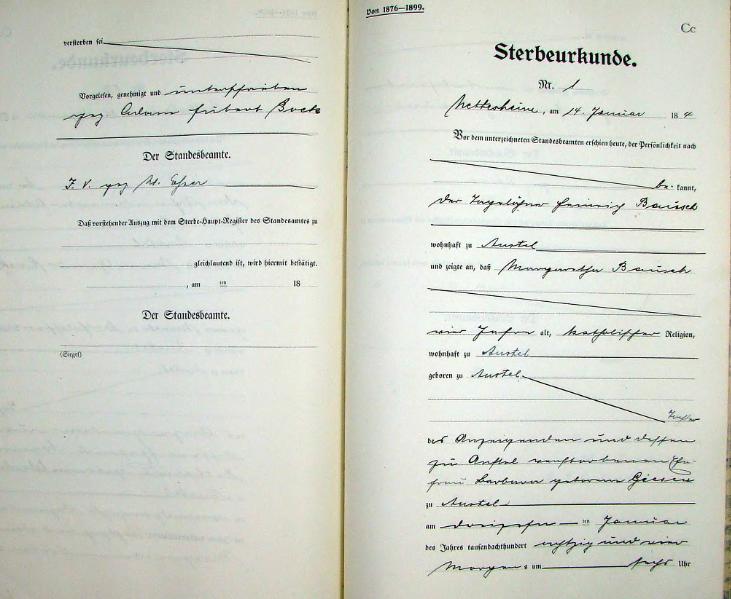 verstorben sei
Vorgelesen, genehmigt und unterschrieben
gez. Adam Hubert Bock
Der Standesbeamte.
J. V. gez. W. Esser
Daß vorstehender Auszug mit dem Sterbe-Haupt-Register des Standesamtes zu
gleichlautend ist, wird hiermit bestätigt.
, am ten 18
Der Standesbeamte.
(Siegel)
Von 1876–1899.
Cc
Sterbeurkunde.
Nr. 1
Nettesheim, am 14. Januar 18 4
Vor dem unterzeichneten Standesbeamten erschien heute, der Persönlichkeit nach
be- kannt,
der Tagelöhner Heinrich Bausch
wohnhaft zu Anstel
und zeigte an, daß Margaretha Bausch
vier Jahre alt, katholischer Religion,
wohnhaft zu Anstel
geboren zu Anstel
Tochter
des Anzeigenden und dessen
zu Anstel verstorbenen Ehe
frau Barbara geborene Giesen
zu Anstel
am dreizehn ten Januar
des Jahres tausendachthundert achtzig und vier
Morgens um sechs Uhr